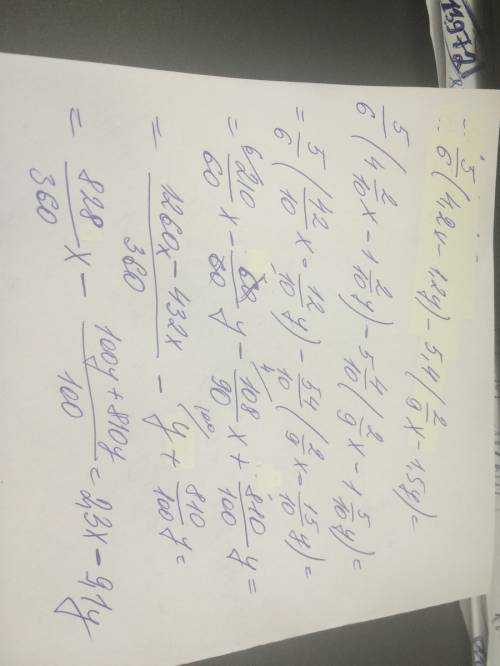 5/6 (4,2x - 1,2y) - 5,4 (2/9 x - 1,5y) =
5/6 (4 2/10 x - 1 2/10 y) - 5 4/10 (2/9 x - 1 5/10 y) =
= 5/6 (42/10 x - 12/10 y) - 54/10 (2/9 x - 15/10 y) =
= 210/60 x - 60/60 y - 108/90 x + 810/100 y =
= (1260x - 432x)/360 - y + 810/100 y =
= 828/360 x - (100y + 810y)/100 = 2,3x - 9,1y